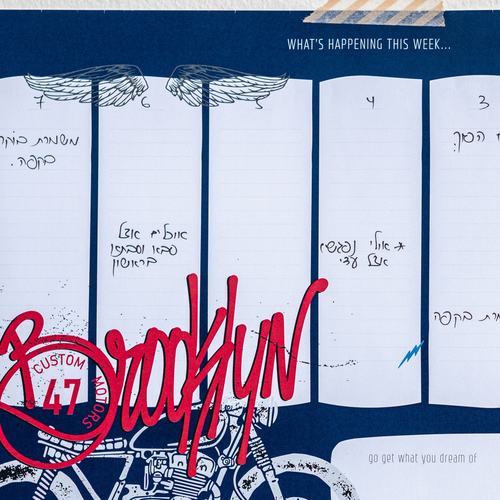 WHAT'S HAPPENING THIS WEEK...
3
הסך.
4
* אולי נפגשא
אצל עדי
5
6
אוכלים אצל
סבא וסבתא
בראשון
7
משמרת בוקר
בקפה.
בקפה
Brooklyn
CUSTOM MOTORS
47
go get what you dream of